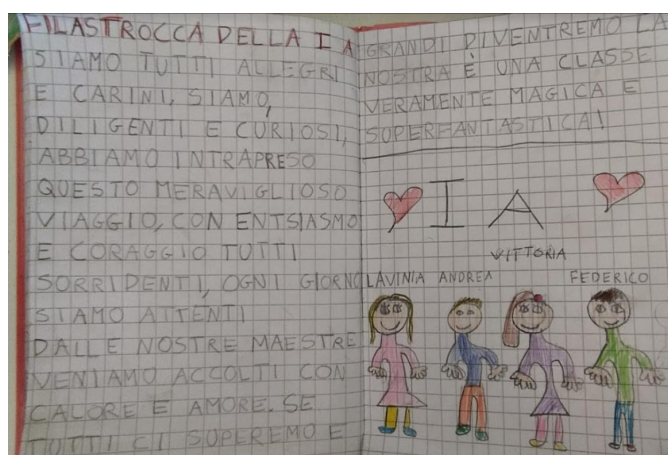 FILASTROCCA DELLA I A
SIAMO TUTTI ALLEGRI
E CARINI, SIAMO,
DILIGENTI E CURIOSI,
ABBIAMO INTRAPRESO
QUESTO MERAVIGLIOSO
VIAGGIO, CON ENTSIASMO
E CORAGGIO TUTTI
SORRIDENTI, OGNI GIORNO
SIAMO ATTENTI
DALLE NOSTRE MAESTRE
VENIAMO ACCOLTI CON
CALORE E AMORE. SE
TUTTI CI SUPEREMO E
GRANDI DIVENTREMO LA
NOSTRA È UNA CLASSE
VERAMENTE MAGICA E
SUPERFANTASTICA!
I A
VITTORIA
LAVINIA ANDREA FEDERICO